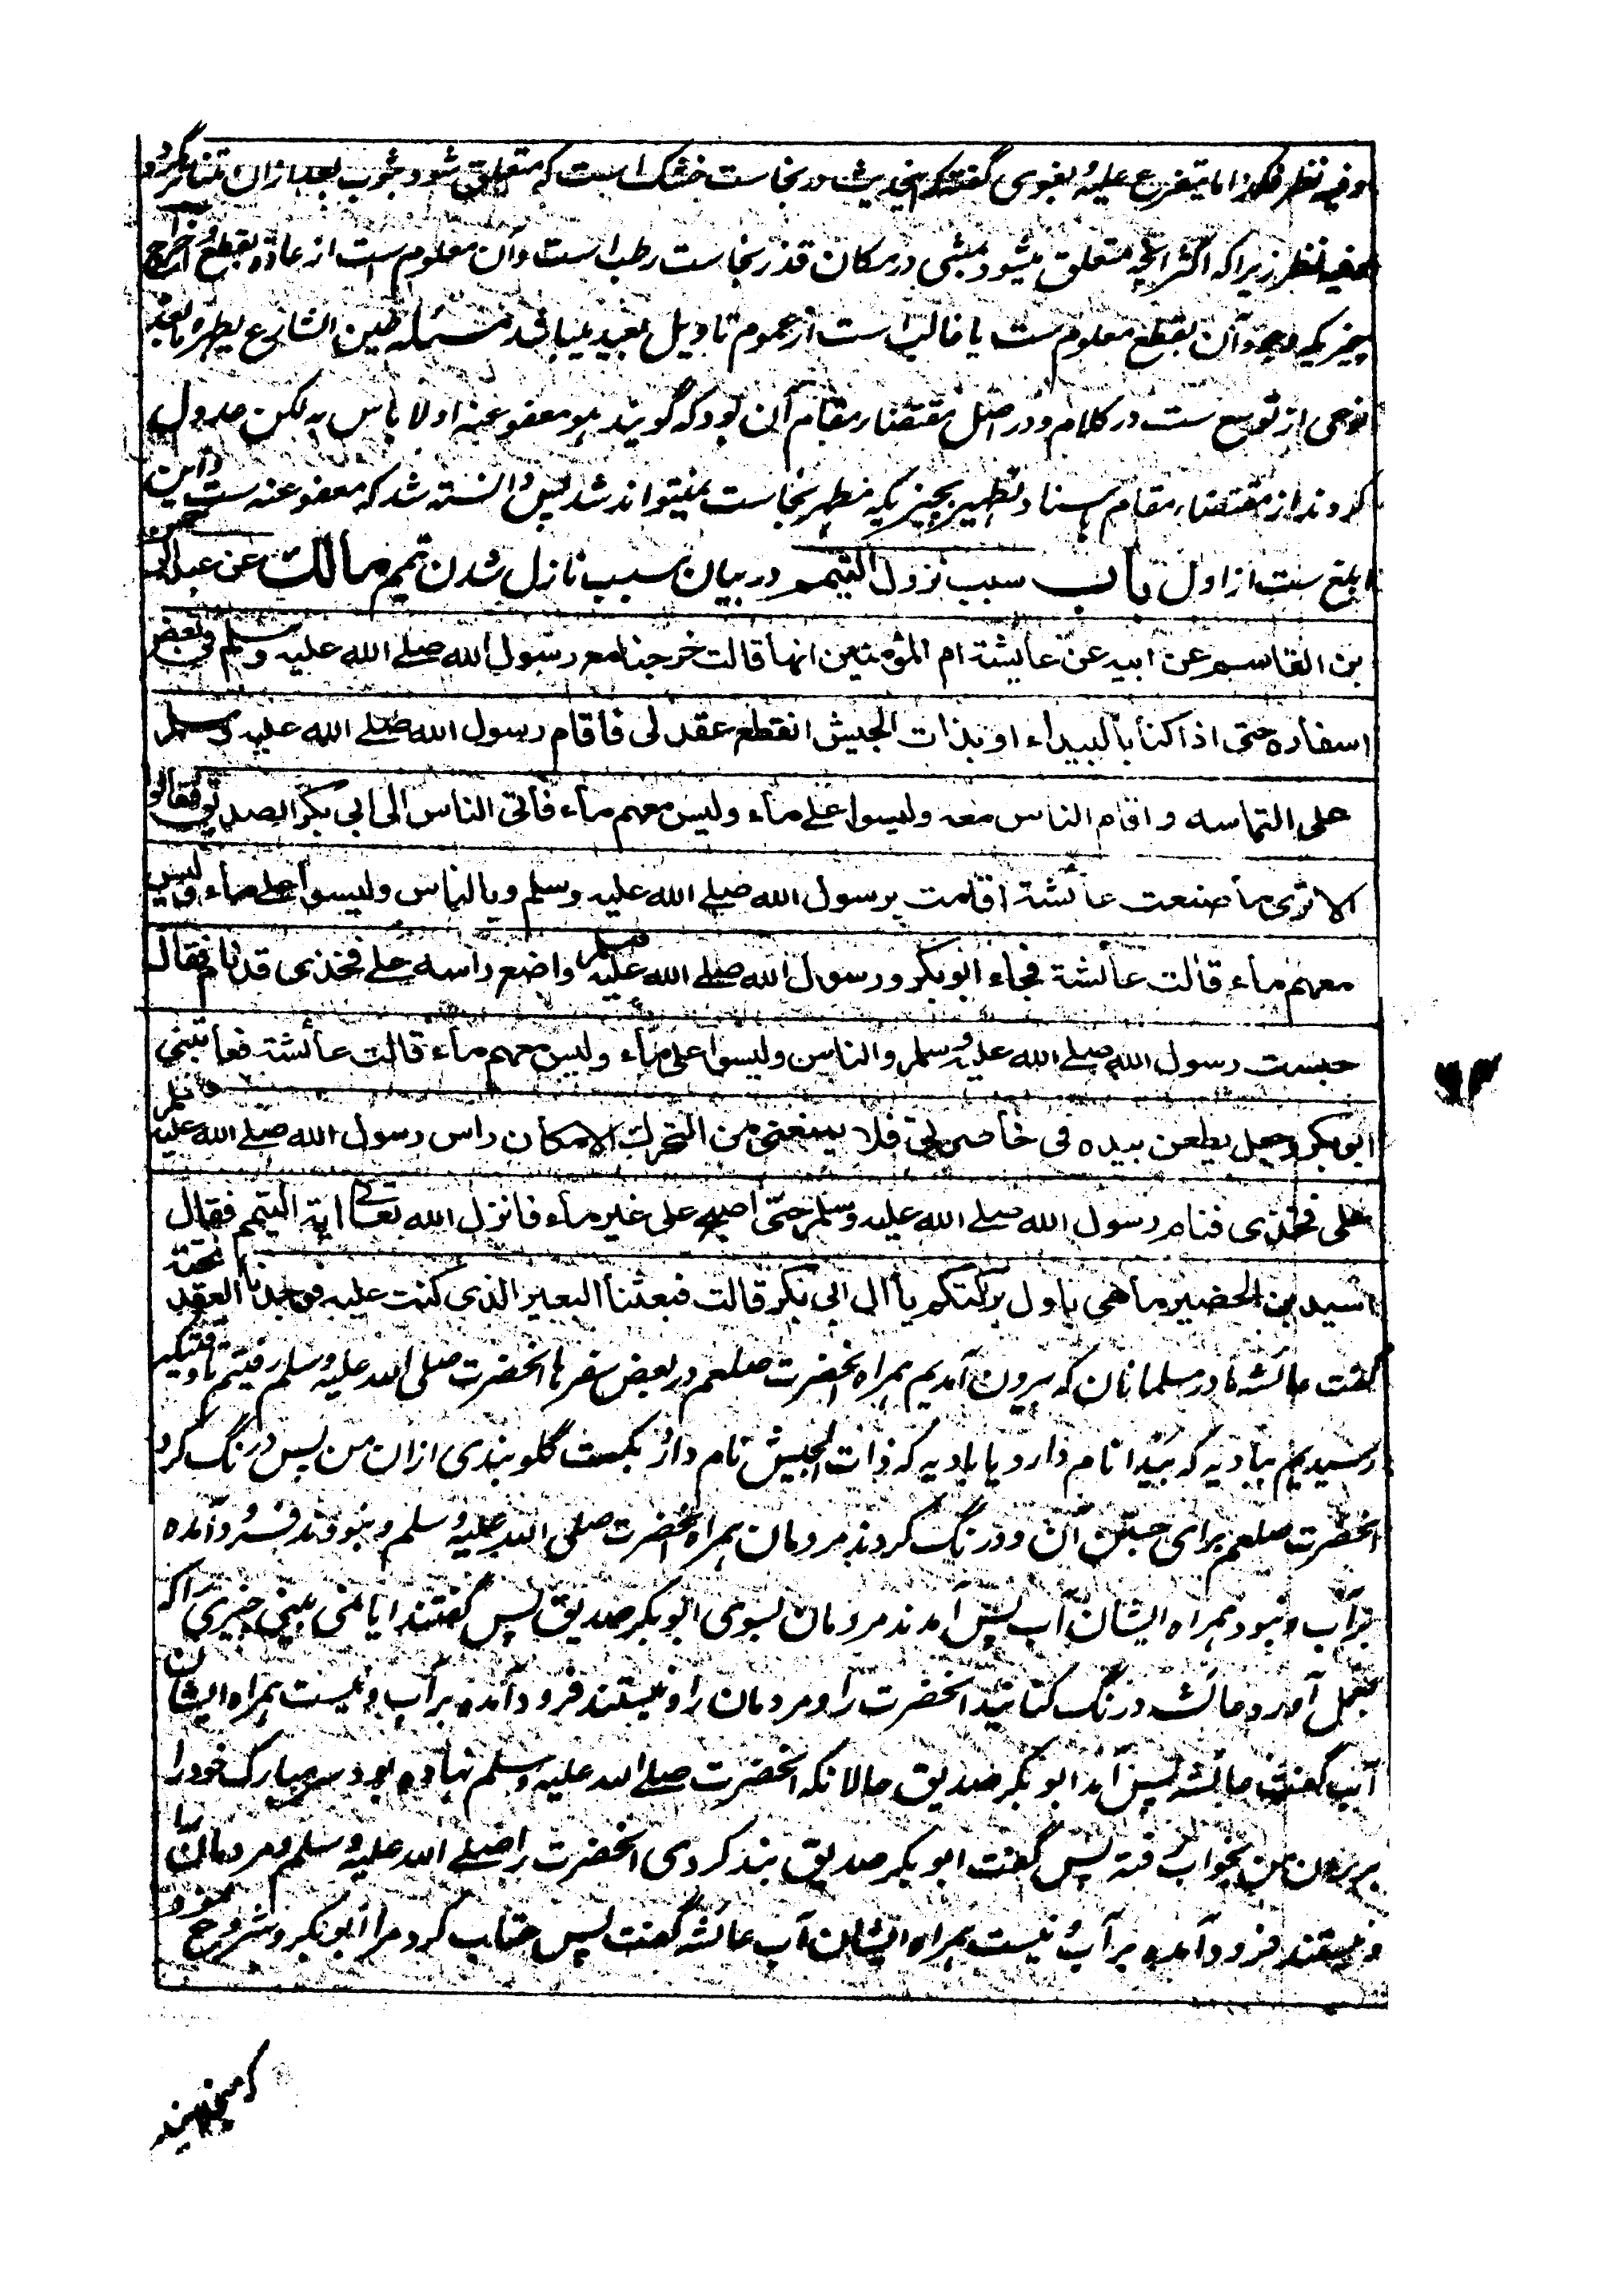 وفیه نظر فکذا ما یتفرع علیه بغوی گفته که این حدیث در نجاست خشک است که متعلق شود بثوب بعد ازان متناثر گردد
وفیه نظر زیرا که اکثر آنچه متعلق میشود بمشی در مکان قذر نجاست رطب است وآن معلوم است از عادة بقطع اخراج
چیزیکه وجود آن بقطع معلوم ست یا غالب است از عموم تاویل بعید میباشد مسئله طین الشارع یطهره ما بعده
نوعی از توسع ست در کلام و در اصل مقتضاء مقام آن بود که گویند هو معفو عنه او لا باس به لکن عدول
کردند از مقتضاء مقام باسناد تطهیر بچیزیکه مطهر نجاست نمیتواند شد پس دانسته شد که معفو عنه ست واین
ابلغ ست از اول باب سبب نزول التیمم در بیان سبب نازل شدن تیمم مالک عن عبدالرحمن
بن القاسم عن ابیه عن عایشة ام المؤمنین انها قالت خرجنا مع رسول الله صلے الله علیه وسلم فی بعض
اسفاره حتی اذا کنا بالبیداء او بذات الجیش انقطع عقد لی فاقام رسول الله صلے الله علیه وسلم
علی التماسه واقام الناس معه ولیسوا علے ماء ولیس معهم ماء فاتی الناس الی ابی بکر الصدیق فقالوا
الا تری ما صنعت عائشة اقامت برسول الله صلے الله علیه وسلم وبالناس ولیسوا علے ماء ولیس
معهم ماء قالت عائشة فجاء ابوبکر ورسول الله صلے الله علیه وسلم واضع راسه علے فخذی قد نام فقال
حبست رسول الله صلے الله علیه وسلم والناس ولیسوا علی ماء ولیس معهم ماء قالت عائشة فعاتبنی
ابوبکر وجعل یطعن بیده فی خاصرتی فلا یمنعنی من التحرک الا مکان راس رسول الله صلے الله علیه وسلم
علی فخذی فنام رسول الله صلے الله علیه وسلم حتّی اصبح علی غیر ماء فانزل الله تعالی ایة التیمم فقال
اسید بن الحضیر ما هی باول برکتکم یا ال ابی بکر قالت فبعثنا البعیر الذی کنت علیه فوجدنا العقد تحته
گفت عائشه مادر مسلمانان که بیرون آمدیم همراه آنحضرت صلعم در بعض سفرها آنحضرت صلی الله علیه وسلم رفتیم تا وقتیکه
رسیدیم ببادیه که بیدا نام دارد یا بادیه که ذات الجیش نام دارد بگسست گلوبندی ازان من پس درنگ کرد
آنحضرت صلعم برای جستن آن و درنگ کردند مردمان همراه آنحضرت صلی الله علیه وسلم و نبودند فرود آمده
بر آب و نبود همراه ایشان آب پس آمدند مردمان بسوی ابوبکر صدیق پس گفتند ایا نمی بینی چیزی را که
بعمل آورد عائشه درنگ کنانید آنحضرت را و مردمان را و نیستند فرود آمده بر آب و نیست همراه ایشان
آب گفت عائشه پس آمد ابوبکر صدیق حالانکه آنحضرت صلے الله علیه وسلم نهاده بود سر مبارک خود را
بر ران من بخواب رفته پس گفت ابوبکر صدیق بند کردی آنحضرت را صلے الله علیه وسلم و مردمان را
و نیستند فرود آمده بر آب و نیست همراه ایشان آب عائشه گفت پس عتاب کرد مرا ابوبکر و شروع کرد